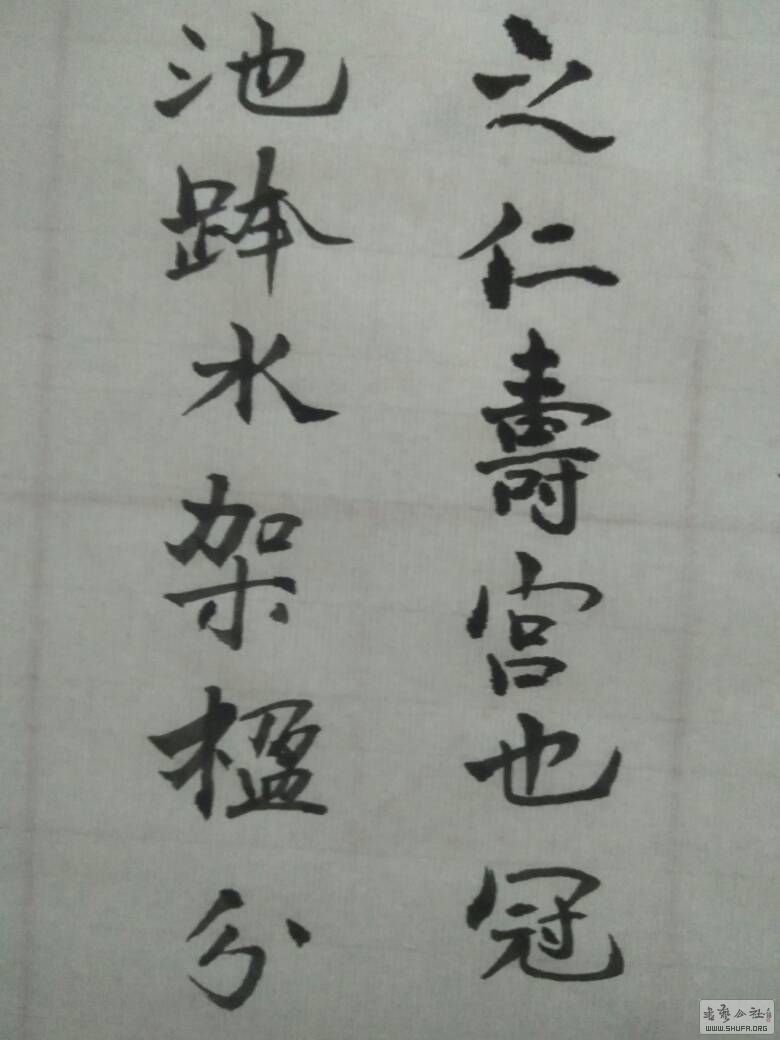 之仁壽宮也冠
池跨水架楹分
書藝公社
WWW.SHUFA.ORG